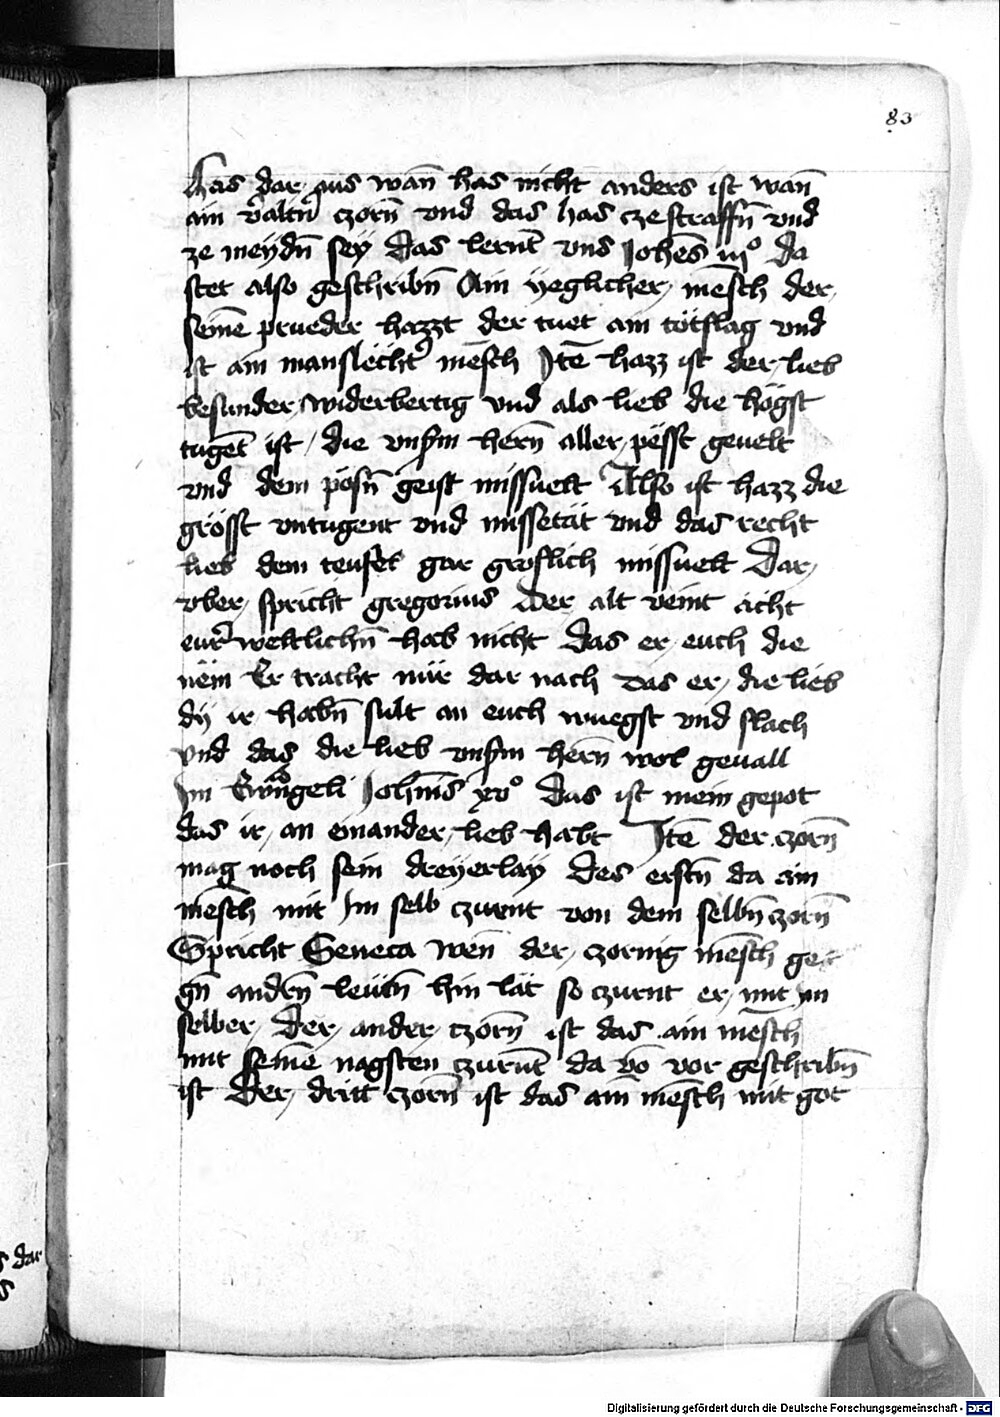 83
has dar aus wan̄ has nicht anders ist wan̄
ain v̄altn̄ czorn̄ vnd das has cze straffn̄ vnd
ze meydn̄ sey Das lernt̄ vns Joh̄es iijº Da
stet also geschribn̄ Ain yeglicher mēsch der
seinē prueder hazzt der tuet ain tötslag vnd
ist ain manslëchtˀ mēsch Jtē hazz ist der lieb
besunder widerbertig vnd als lieb die högst
tugēt ist / die vnsm̄ hern̄ aller pësst geuelt
vnd dem pösn̄ geist missuelt Also ist hazz die
grösst vntugent vnd missetät vnd das recht
lieb dem teufel gar gröslich missuelt Dar
vber spricht gregorius Der alt veint acht
eurˀ weltlichn̄ hab nicht das er euch die
nëm Er tracht nür dar nach das er die lieb
dy ir habn̄ sült an euch muegst vnd slach
vnd das die lieb vnsm̄ hern̄ wol geuall
Jm Ewāgeli Joh̄nis xvº Das ist mein gepot
das ir an einander lieb habt Jtē der czorn̄
mag noch sein dreyerlay Des erstn̄ da ain
mēsch mit Jm selb czurnt von dem selbn̄ czorn̄
Spricht Seneca Wen̄ der czornig mēsch
gn̄ andrn̄ leütn̄ hin lät so czurnt er mit jm
selber Der ander czorn̄ ist das ain mēsch
mit seinē nagsten czurnt̄ da vō vor geschribn̄
ist Der dritt czorn̄ ist das ain mēsch mit got
s dar
s
Digitalisierung gefördert durch die Deutsche Forschungsgemeinschaft - DFG